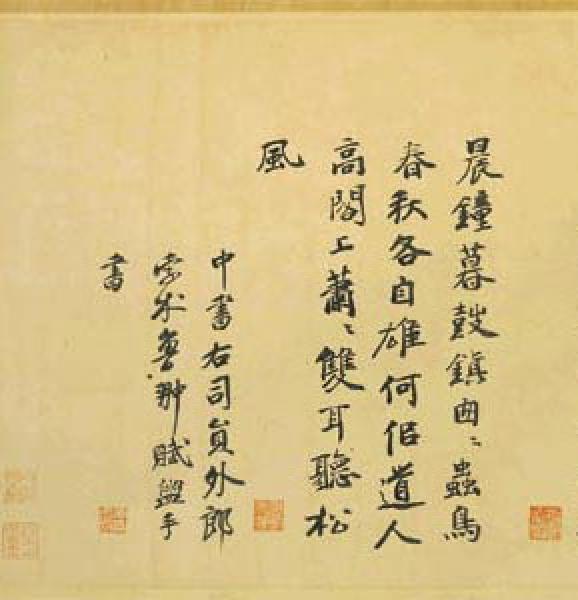 晨鐘暮鼓鎮囱〻蟲鳥
春秋各自雄何佀道人
高閣上蕭〻雙耳聽松
風
中書右司員外郎
孛朮魯翀賦盥手
書